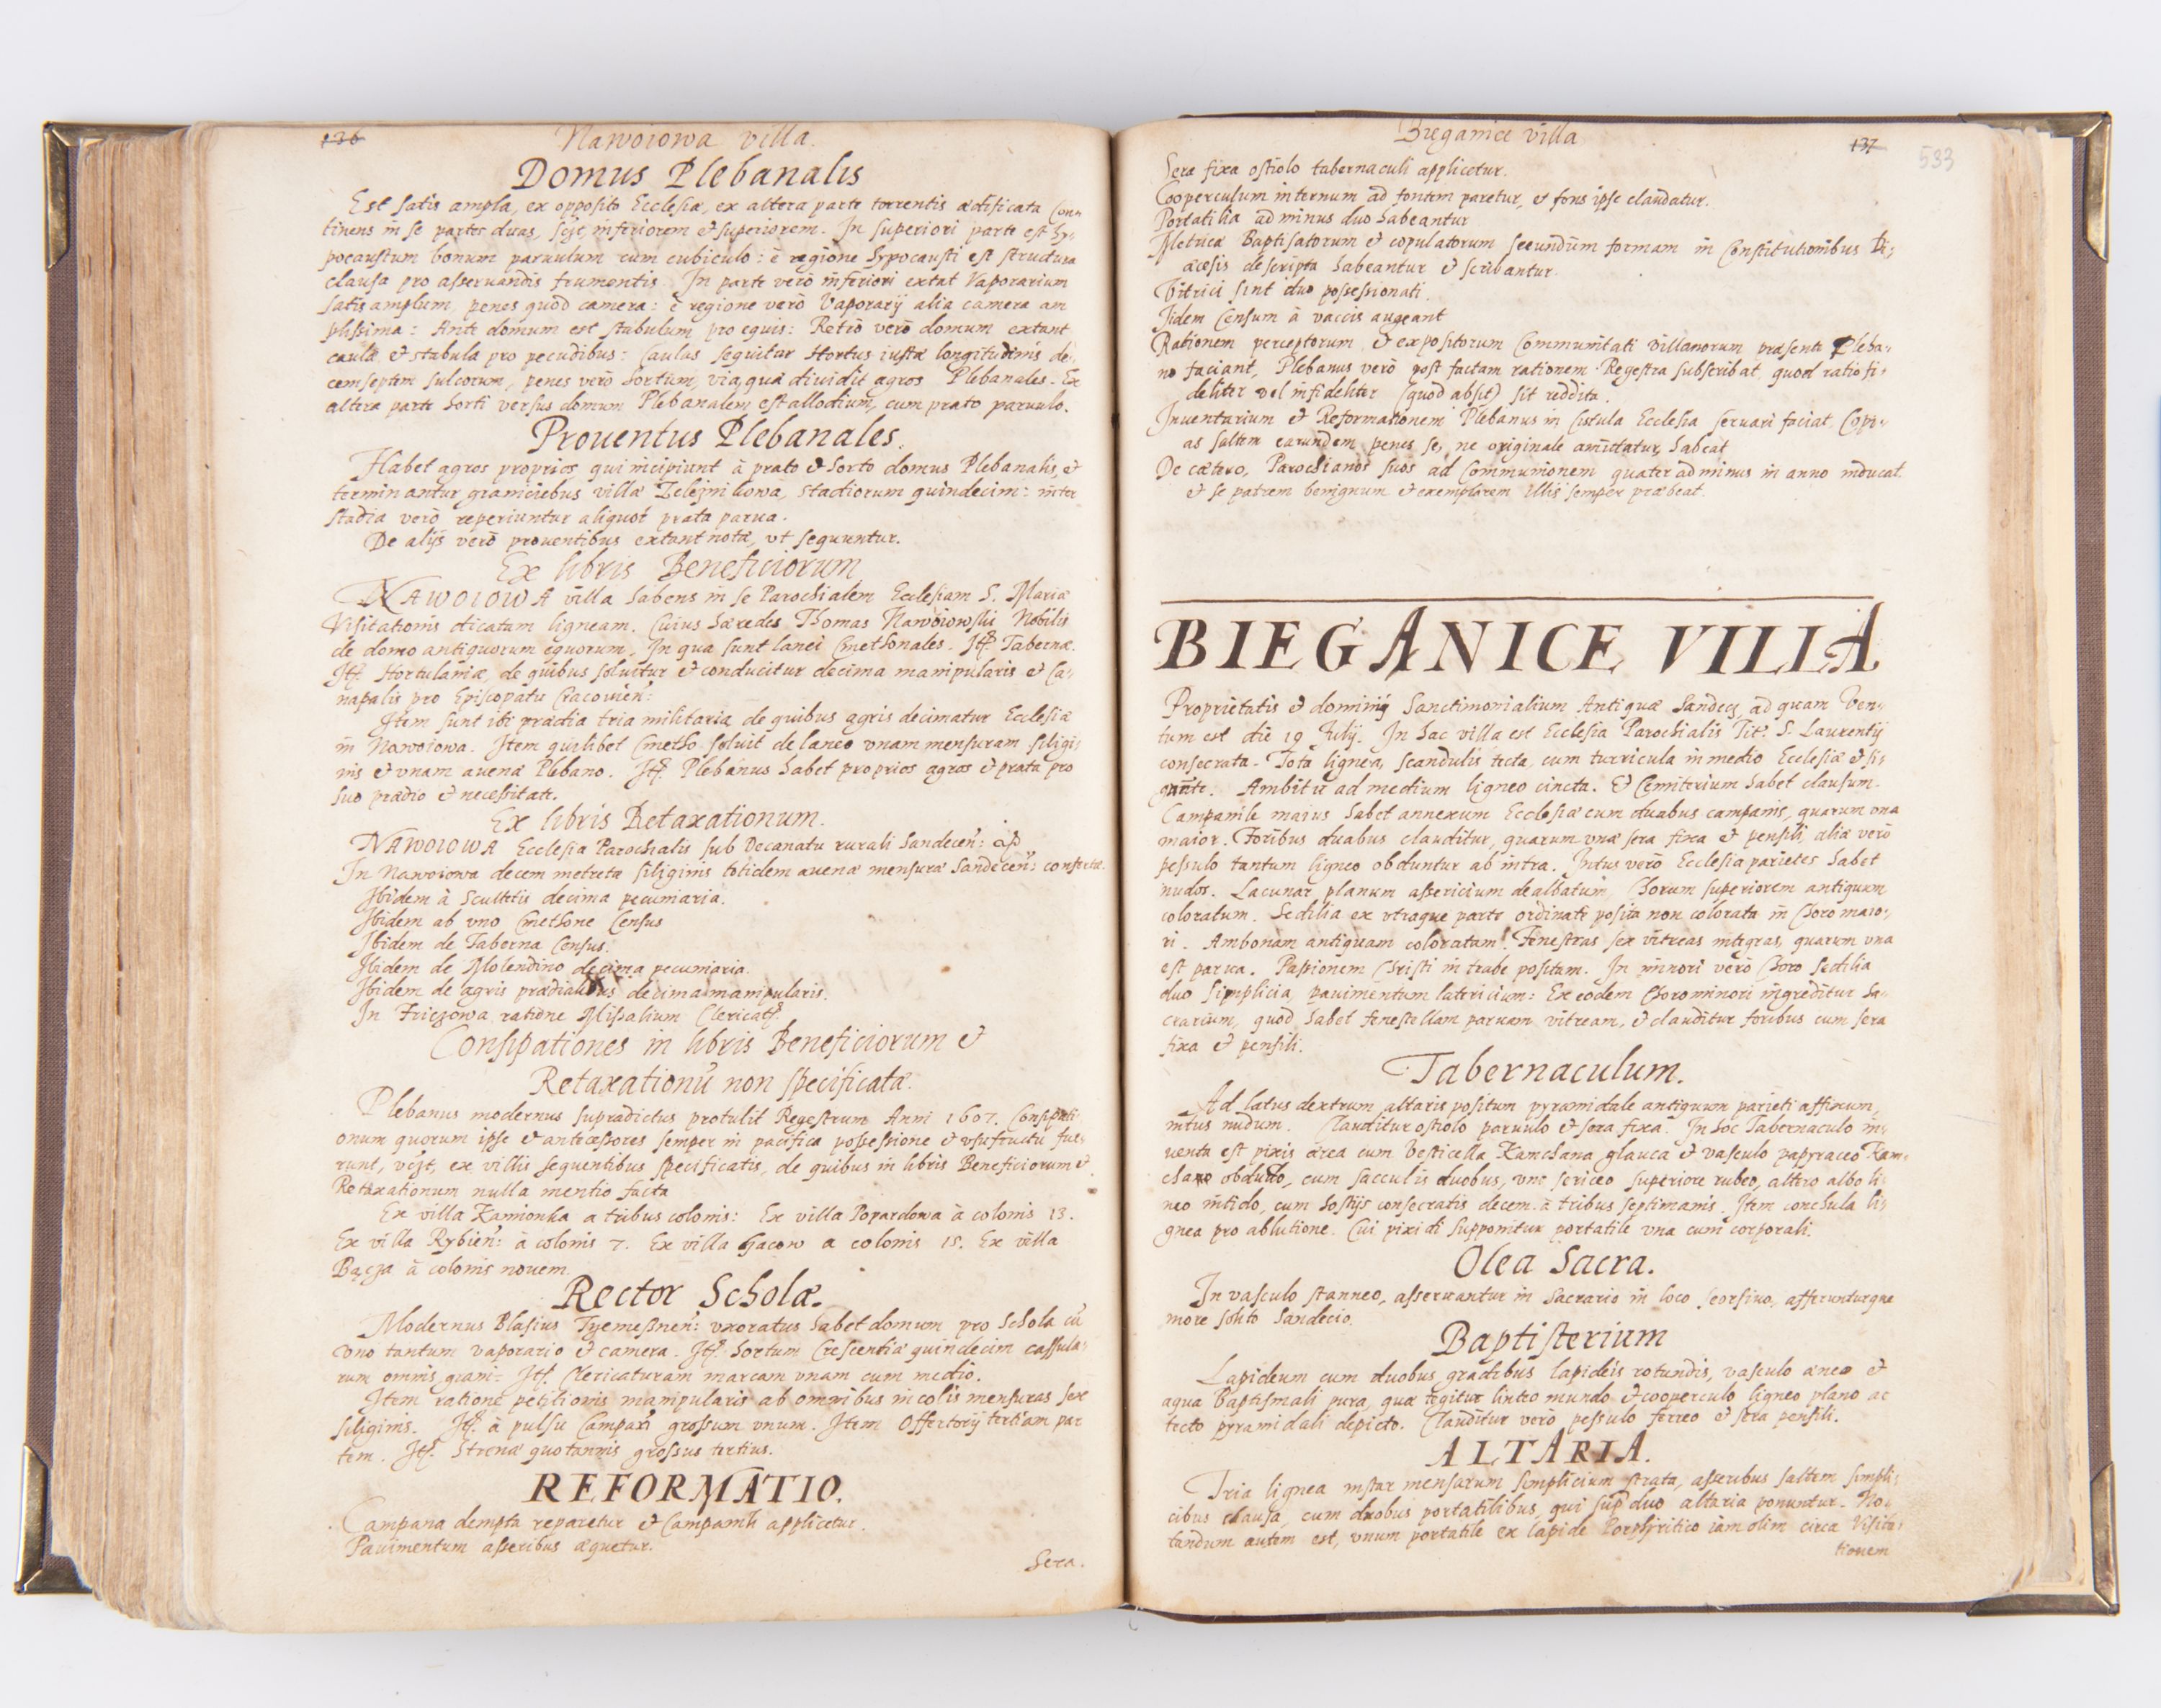 136
Nawoiowa villa.
Domus Plebanalis
Est satis ampla, ex opposito Ecclesiæ, ex altera parte torrentis ædificata Con-
tinens in se partes duas, scjt, inferiorem et superiorem. In superiori parte est hy-
pocaustum bonum paruulum cum cubiculo: è regione hypocausti est structura
clausa pro asseruandis frumentis. In parte verò inferiori extat Vaporarium
satis amplum, penes quod camera: è regione verò Vaporarij alia camera am
plissima: Ante domum est stabulum pro equis: Retrò verò domum extant
caulæ et stabula pro pecudibus: Caulas sequitur Hortus iustæ longitudinis de-
cemseptem sulcorum, penes verò hortum, via, qua diuidit agros Plebanales. Ex
altera parte horti versus domum Plebanalem est allodium, cum prato paruulo.
Prouentus Plebanales.
Habet agros proprios qui incipiunt à prato et horto domus Plebanalis, et
terminantur graniciebus villæ Zelejnikowa, stadiorum quindecim: inter
stadia verò reperiuntur aliquot prata parua.
De alijs verò prouentibus extant notæ, vt sequuntur.
Ex libris Beneficiorum
NAWOIOWA villa habens in se Parochialem Ecclesiam S. Mariæ
Visitationis dicatam ligneam. Cuius hæredes Thomas Nawoiowski Nobilis
de domo antiquorum equorum, In qua sunt lanei Cmethonales. Itē Tabernæ.
Itē Hortulaniæ, de quibus soluitur et conducitur decima manipularis et Ca-
napalis pro Episcopatu Cracouien:
Item sunt ibi prædia tria militaria de quibus agris decimatur Ecclesiæ
in Nawoiowa. Item quilibet Cmetho soluit de laneo vnam mensuram siligi-
nis et vnam auenæ Plebano. Itē Plebanus habet proprios agros et prata pro
suo prædio et necessitate.
Ex libris Retaxationum.
NAWOIOWA Ecclesia Parochialis sub Decanatu rurali Sandecen:
In Nawoiowa decem metretæ siliginis totidem auenæ mensuræ Sandecen:
Ibidem à Scultetis decima pecuniaria.
Ibidem ab vno Cmethone Census
Ibidem de Taberna Census.
Ibidem de Molendino decima pecuniaria.
Ibidem de agris prædialibus decima manipularis.
In Friczowa ratione Missalium
Consipationes in libris Beneficiorum et
Retaxationū non specificatæ.
Plebanus modernus supradictus protulit Regestrum Anni 1607. Consipati
onum quorum ipse et antecessores semper in pacifica possessione et vsufructu fue-
runt, vcjt, ex villis sequentibus specificatis, de quibus in libris Beneficiorum et
Retaxationum nulla mentio facta
Ex villa Kamionka a tribus colonis: Ex villa Popardowa à colonis 13.
Ex villa Rybien: à colonis 7. Ex villa Jacow a colonis 15. Ex villa
Bącza à colonis nouem.
Rector Scholæ.
Modernus Blasius vxoratus habet domum pro Schola cū
vno tantum vaporario et camera. Itē hortum Crescentiæ quindecim cassula-
rum omnis grani. Itē Clericaturam marcam vnam cum medio.
Item ratione petitionis manipularis ab omnibus incolis mensuras sex
siliginis. Itē à pulsu Campanæ grossum vnum. Item Offertorij tertiam par
tem. Itē Strenæ quotannis grossus tertius.
REFORMATIO.
Campana dempta reparetur et Campanili applicetur.
Pauimentum asseribus æquetur.
Sera.
Bieganice villa
137
533
Sera fixa ostiolo tabernaculi applicetur.
Cooperculum internum ad fontem paretur, et fons ipse claudatur.
Portatilia ad minus duo habeantur
Metricæ Baptisatorum et copulatorum secundum formam in Constitutionibus Di-
œcesis descripta habeantur et scribantur.
Vitrici sint duo possessionati.
Iidem Censum à vaccis augeant
Rationem perceptorum et expositorum Communitati villanorum præsente Pleba-
no faciant, Plebanus verò post factam rationem Regestra subscribat quod ratio fi-
deliter vel infideliter (quod absit) sit reddita.
Inuentarium et Reformationem Plebanus in Cistula Ecclesiæ seruari faciat, Copi-
as saltem earundem penes se, ne originale amittatur, habeat
De cætero, Parochianos suos ad Communionem quater ad minus in anno inducat
et se patrem benignum et exemplarem illis semper præbeat.
BIEGANICE VILLA
Proprietatis et dominij Sanctimonialium Antiquæ Sandecz, ad quam Ven-
tum est die 19 Julij. In hac villa est Ecclesia Parochialis Titː S. Laurentij
consecrata. Tota lignea, scandulis tecta, cum turricula in medio Ecclesiæ et si-
gnante. Ambitu ad medium ligneo cincta. Et Cemiterium habet clausum.
Campanile maius habet annexum Ecclesiæ cum duabus campanis, quarum una
maior. Foribus duabus clauditur, quarum vnæ sera fixa et pensili, aliæ verò
pessulo tantum ligneo obduntur ab intra. Intus verò Ecclesia parietes habet
nudos. Lacunar planum assericium dealbatum. Chorum superiorem antiquum
coloratum. Sedilia ex vtraque parte ordinatè posita non colorata in Choro maio-
ri. Ambonam antiquam coloratam. Fenestras sex vitreas integras, quarum una
est parua. Passionem Christi in trabe positam. In minori verò Choro sedilia
duo simplicia, pauimentum latericium: Ex eodem Choro minori ingreditur Sa-
crarium, quod habet fenestellam paruam vitream, et clauditur foribus cum sera
fixa et pensili.
Tabernaculum.
Ad latus dextrum altaris positum pyramidale antiquum parieti affixum,
intus nudum. Clauditur ostiolo paruulo et sera fixa. In hoc Tabernaculo in-
uenta est pixis ærea cum vesticella Kamchana glauca et vasculo papyraceo Kam-
chano obducto, cum sacculis duobus, vno sericeo superiore rubeo, altero albo li-
neo nitido, cum hostijs consecratis decem à tribus septimanis. Item conchula li-
gnea pro ablutione. Cui pixidi supponitur portatile vna cum corporali.
Olea Sacra.
In vasculo stanneo, asseruantur in Sacrario in loco seorsiuo, afferunturque
more solito Sandecio.
Baptisterium
Lapideum cum duobus gradibus lapideis rotundis, vasculo æneo et
aqua Baptismali pura, quæ tegitur linteo mundo et cooperculo ligneo plano ac
tecto pyramidali depicto. Clauditur verò pessulo ferreo et sera pensili.
ALTARIA.
Tria lignea instar mensarum simplicium strata, asseribus saltem simpli-
cibus clausa, cum duobus portatilibus, qui sup duo altaria ponuntur. No-
tandum autem est, vnum portatile ex lapide Porphiritico iam olim circa Visita-
tionem